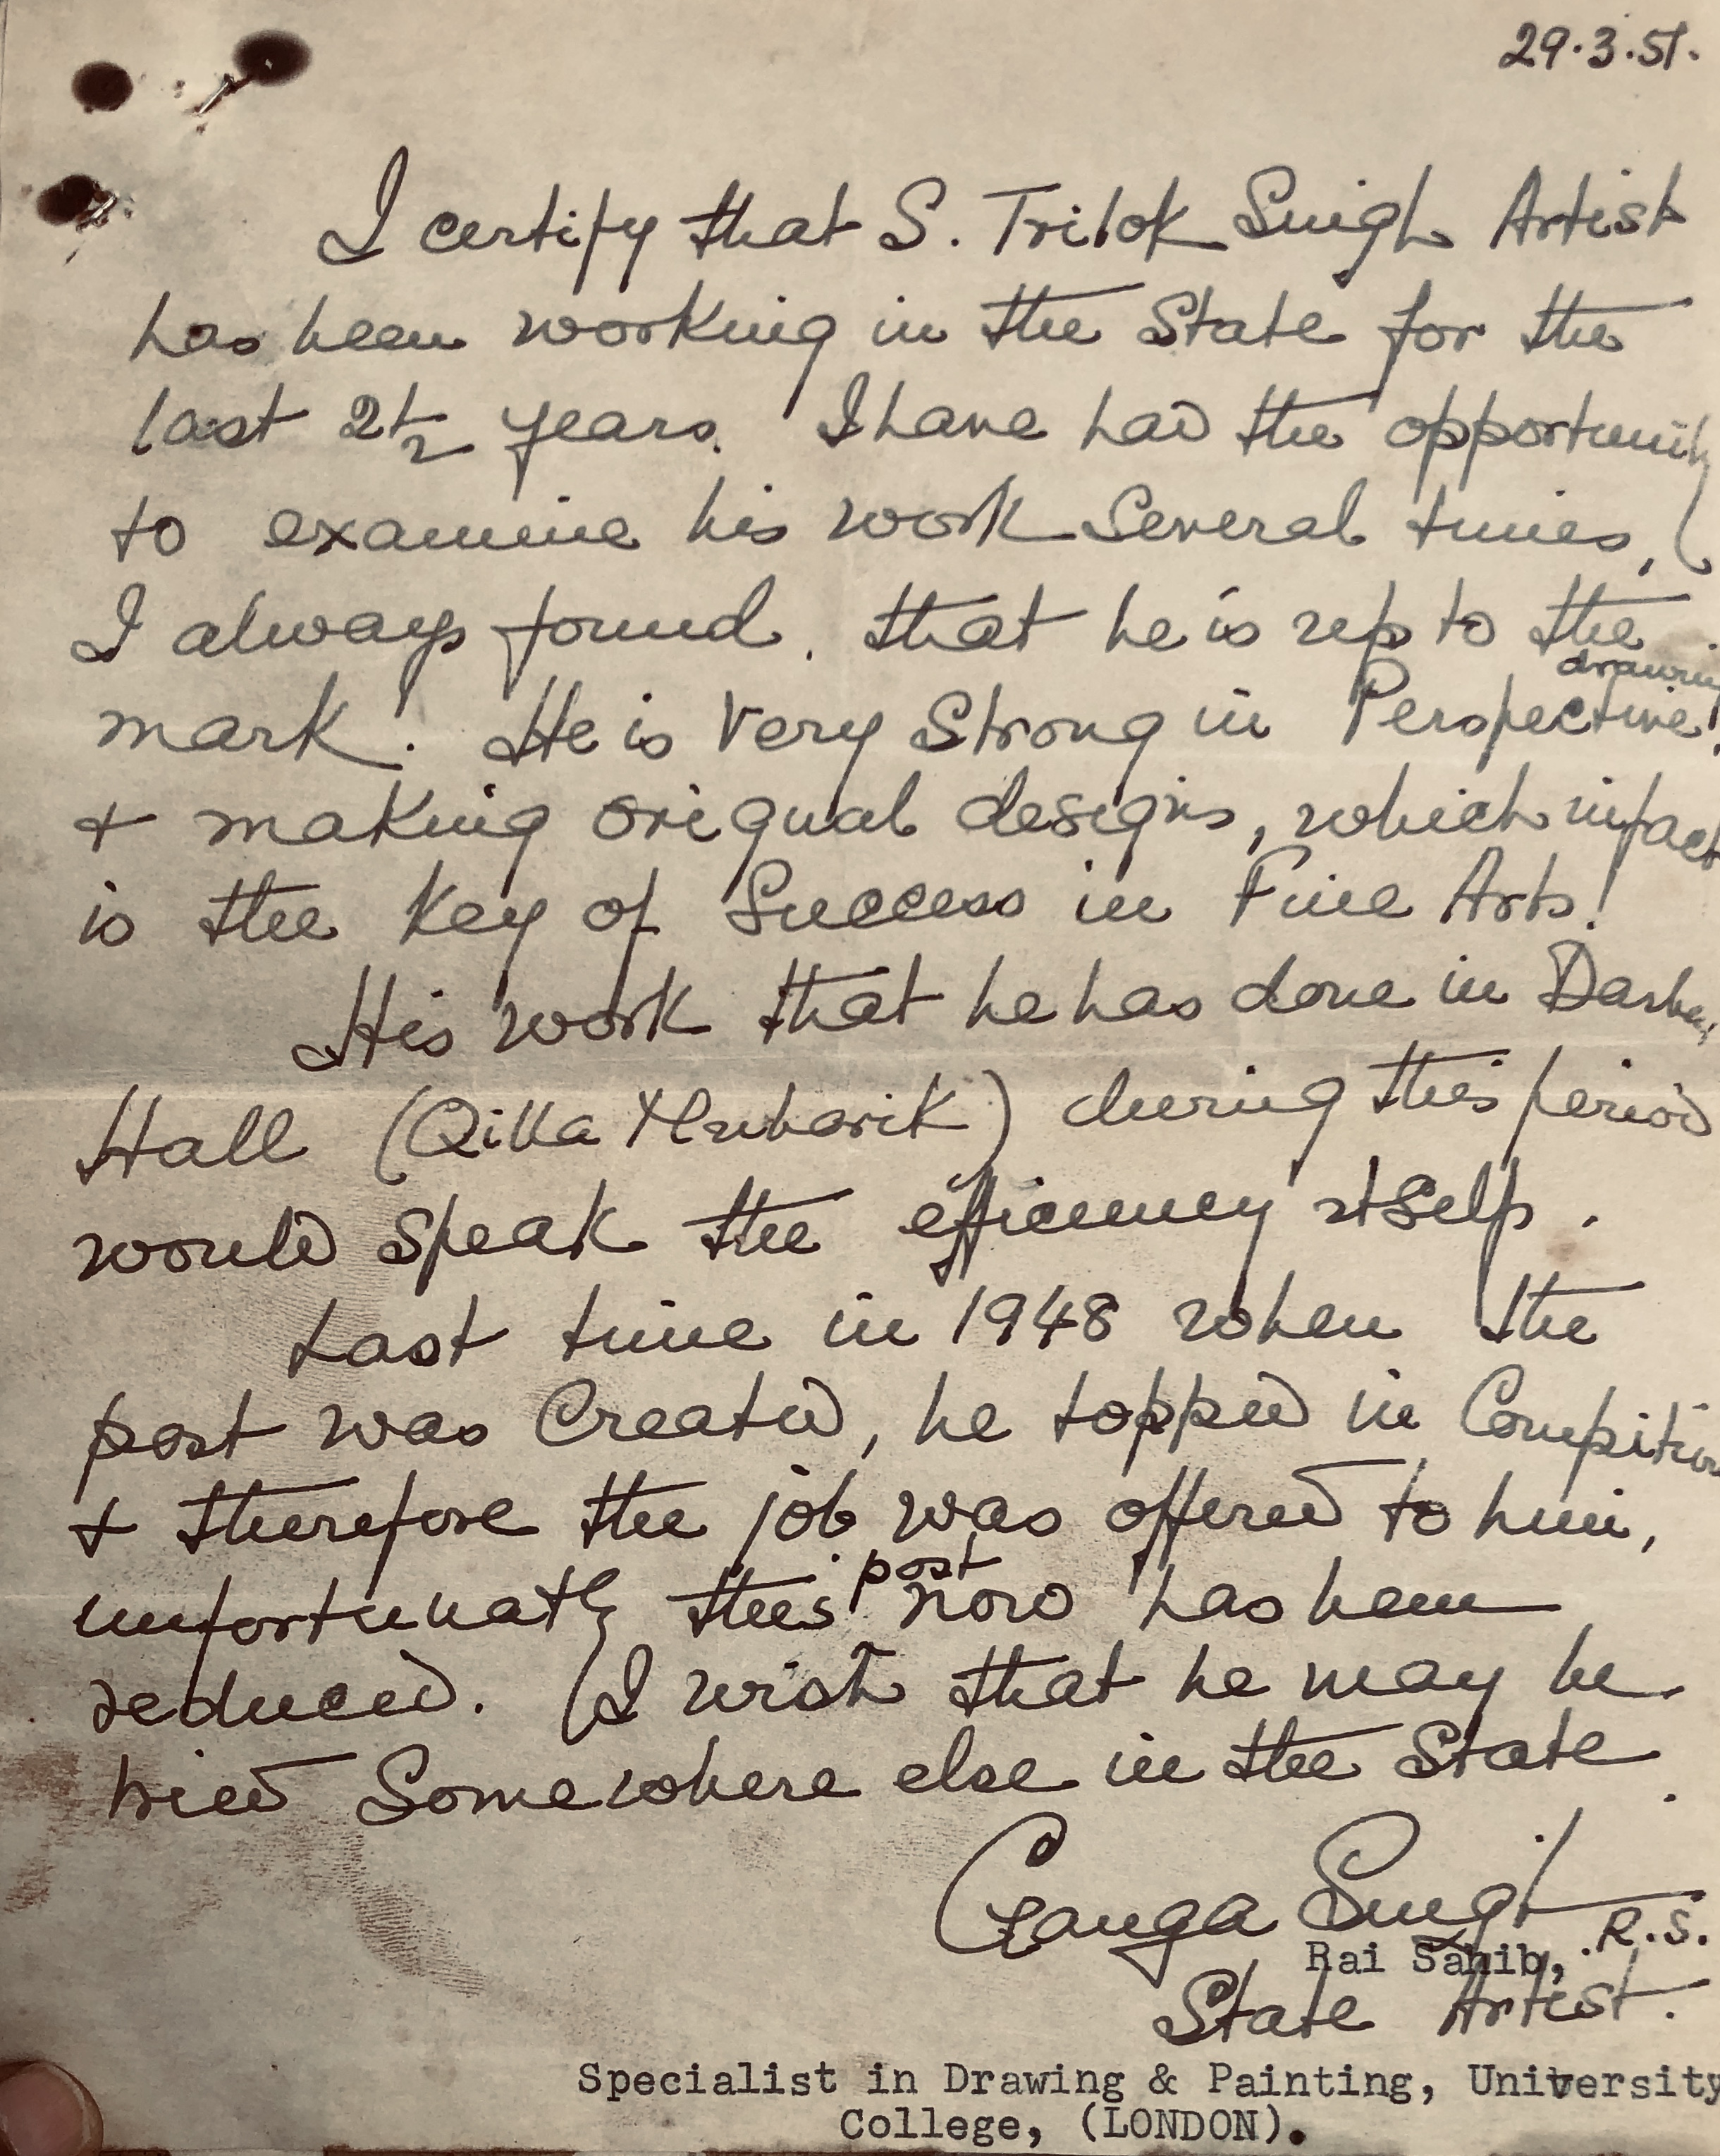 29.3.51.
I certify that S. Trilok Singh Artist
has been working in the State for the
last 2½ years. I have had the opportunity
to examine his work Several times,
I always found that he is up to the
mark. He is very Strong in Perspective drawing
+ making original designs, which infact
is the Key of Success in Fine Arts!
His work that he has done in Darbar
Hall (Qilla Mubarik) during this period
would speak the efficiency itself.
Last time in 1948 when the
post was Created, he topped in Compitition
+ therefore the job was offered to him,
unfortunatly this post now has been
reduced. I wish that he may be
tried Somewhere else in the State.
Ganga Singh
Rai Sahib, R.S.
State Artist.
Specialist in Drawing & Painting, University
College, (LONDON).